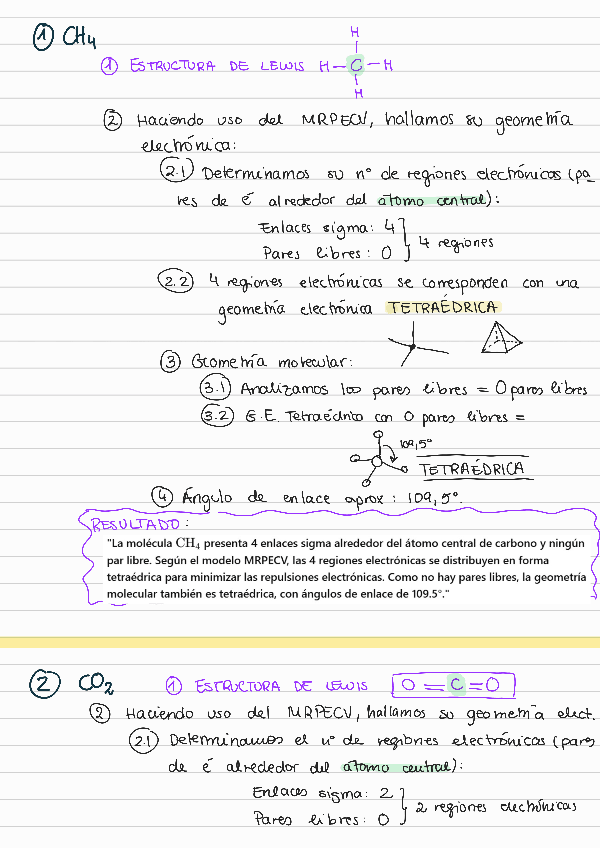 ① CH₄
H
① ESTRUCTURA DE LEWIS H–C–H
H
② Haciendo uso del MRPECV, hallamos su geometría
electrónica:
2.1 Determinamos su nº de regiones electrónicas (pa
res de é alrededor del átomo central):
Enlaces sigma: 4
Pares libres: 0
4 regiones
2.2 4 regiones electrónicas se corresponden con una
geometría electrónica TETRAÉDRICA
③ Geometría molecular:
3.1 Analizamos los pares libres = 0 pares libres
3.2 G.E. Tetraédrica con 0 pares libres =
109,5°
TETRAÉDRICA
④ Ángulo de enlace aprox: 109,5°.
RESULTADO:
"La molécula CH₄ presenta 4 enlaces sigma alrededor del átomo central de carbono y ningún
par libre. Según el modelo MRPECV, las 4 regiones electrónicas se distribuyen en forma
tetraédrica para minimizar las repulsiones electrónicas. Como no hay pares libres, la geometría
molecular también es tetraédrica, con ángulos de enlace de 109.5°."
② CO₂ ① ESTRUCTURA DE LEWIS O=C=O
② Haciendo uso del MRPECV, hallamos su geometría elect.
2.1 Determinamos el nº de regiones electrónicas (pares
de é alrededor del átomo central):
Enlaces sigma: 2
Pares libres: 0
2 regiones electrónicas